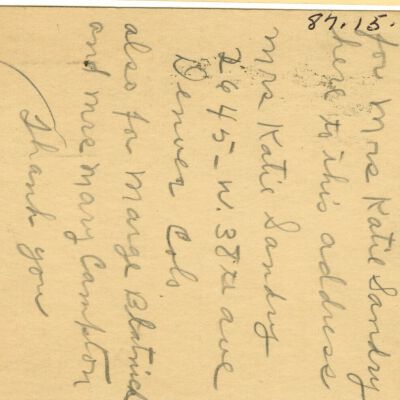 87.15.
for Mrs Katie Sandry
here to this address
Mrs Katie Sandry
2645 - W. 38th ave
Denver Colo
also for Marge
and Mrs Mary Campton
Thank you